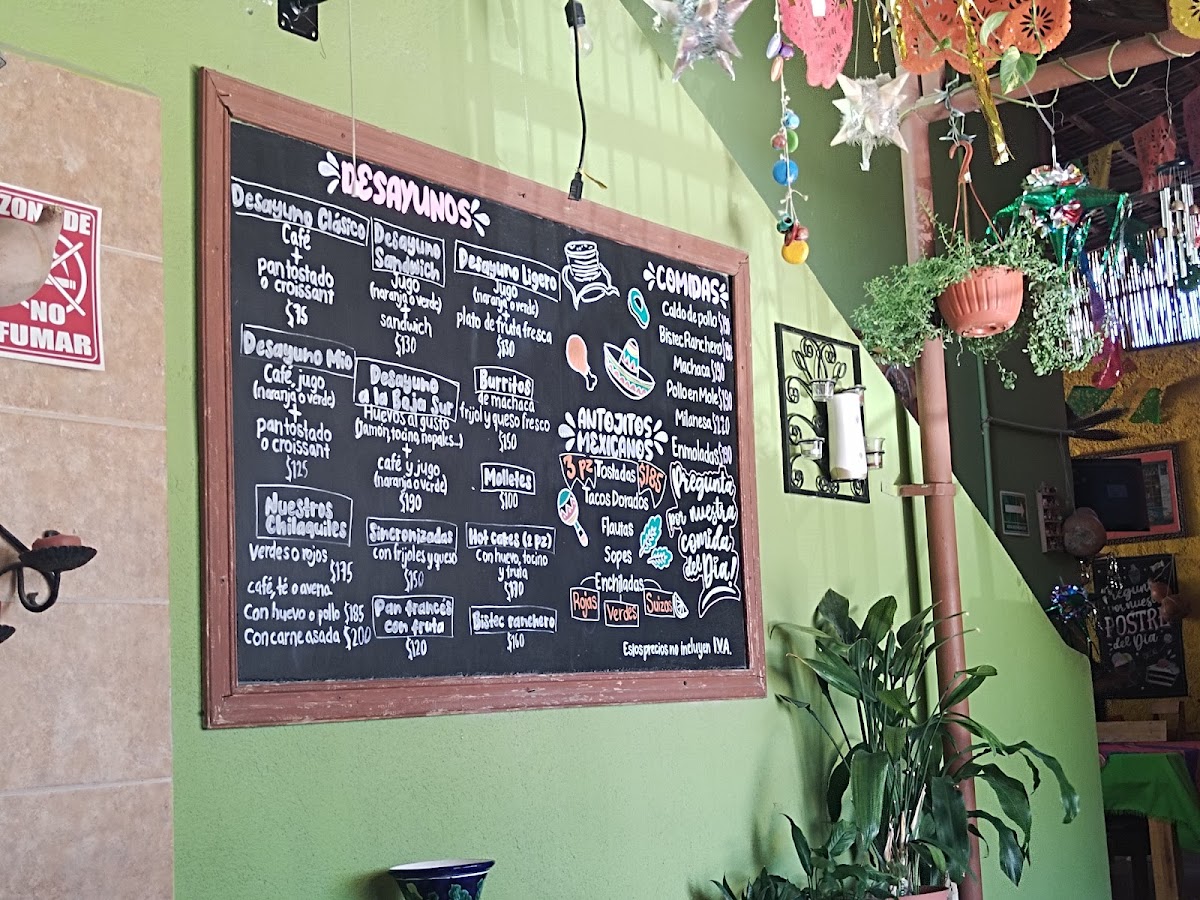 ZONA DE
NO
FUMAR
DESAYUNOS
Desayuno Clásico
Café
+
pan tostado
o croissant
$75
Desayuno Mio
Café, jugo
(naranja o verde)
+
pan tostado
o croissant
$125
Nuestros
Chilaquiles
Verdes o rojos
$175
café, té o avena.
Con huevo o pollo $185
Con carne asada $200
Desayuno
Sandwich
Jugo
(naranja o verde)
+
sandwich
$130
Desayuno
a la Baja Sur
Huevos al gusto
(Jamón, tocino, nopales...)
+
café y jugo
(naranja o verde)
$190
Sincronizadas
con frijoles y queso
$150
Pan francés
con fruta
$120
Desayuno Ligero
Jugo
(naranja o verde)
+
plato de fruta fresca
$130
Burritos
de machaca
frijol y queso fresco
$150
Molletes
$100
Hot cakes (2 pz)
Con huevo, tocino
y fruta
Bistec ranchero
$160
COMIDAS
Caldo de pollo
Bistec Ranchero
Machaca $190
Pollo en Mole $190
Milanesa $220
Enmoladas $190
ANTOJITOS
MEXICANOS
3 pz Tostadas $185
Tacos Dorados
Flautas
Sopes
Enchiladas
Rojas Verdes Suizas
Pregunta
por nuestra
comida
del Día!
Estos precios no incluyen I.V.A.
Pregunta
por nuestro
POSTRE
del Día